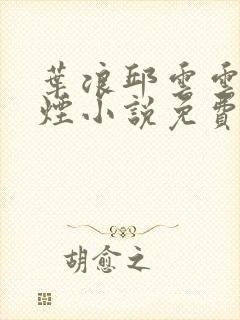 葉浪邱雲雲
煙小說免費
胡愈之